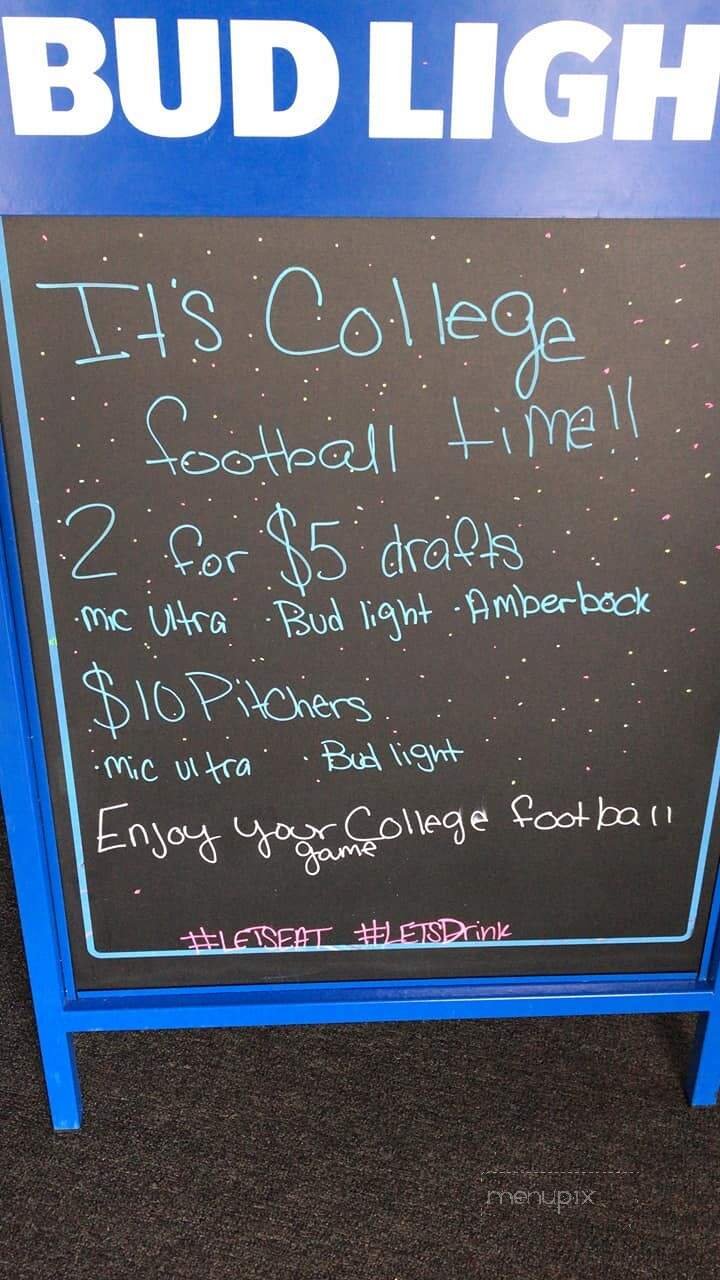 BUD LIGH
It's College
football time!!
2 for $5 drafts
·Mic Ultra ·Bud light ·Amberbock
$10 Pitchers
·Mic ultra ·Bud light
Enjoy your College football
game
#LETSEAT #LETSDrink
menupix